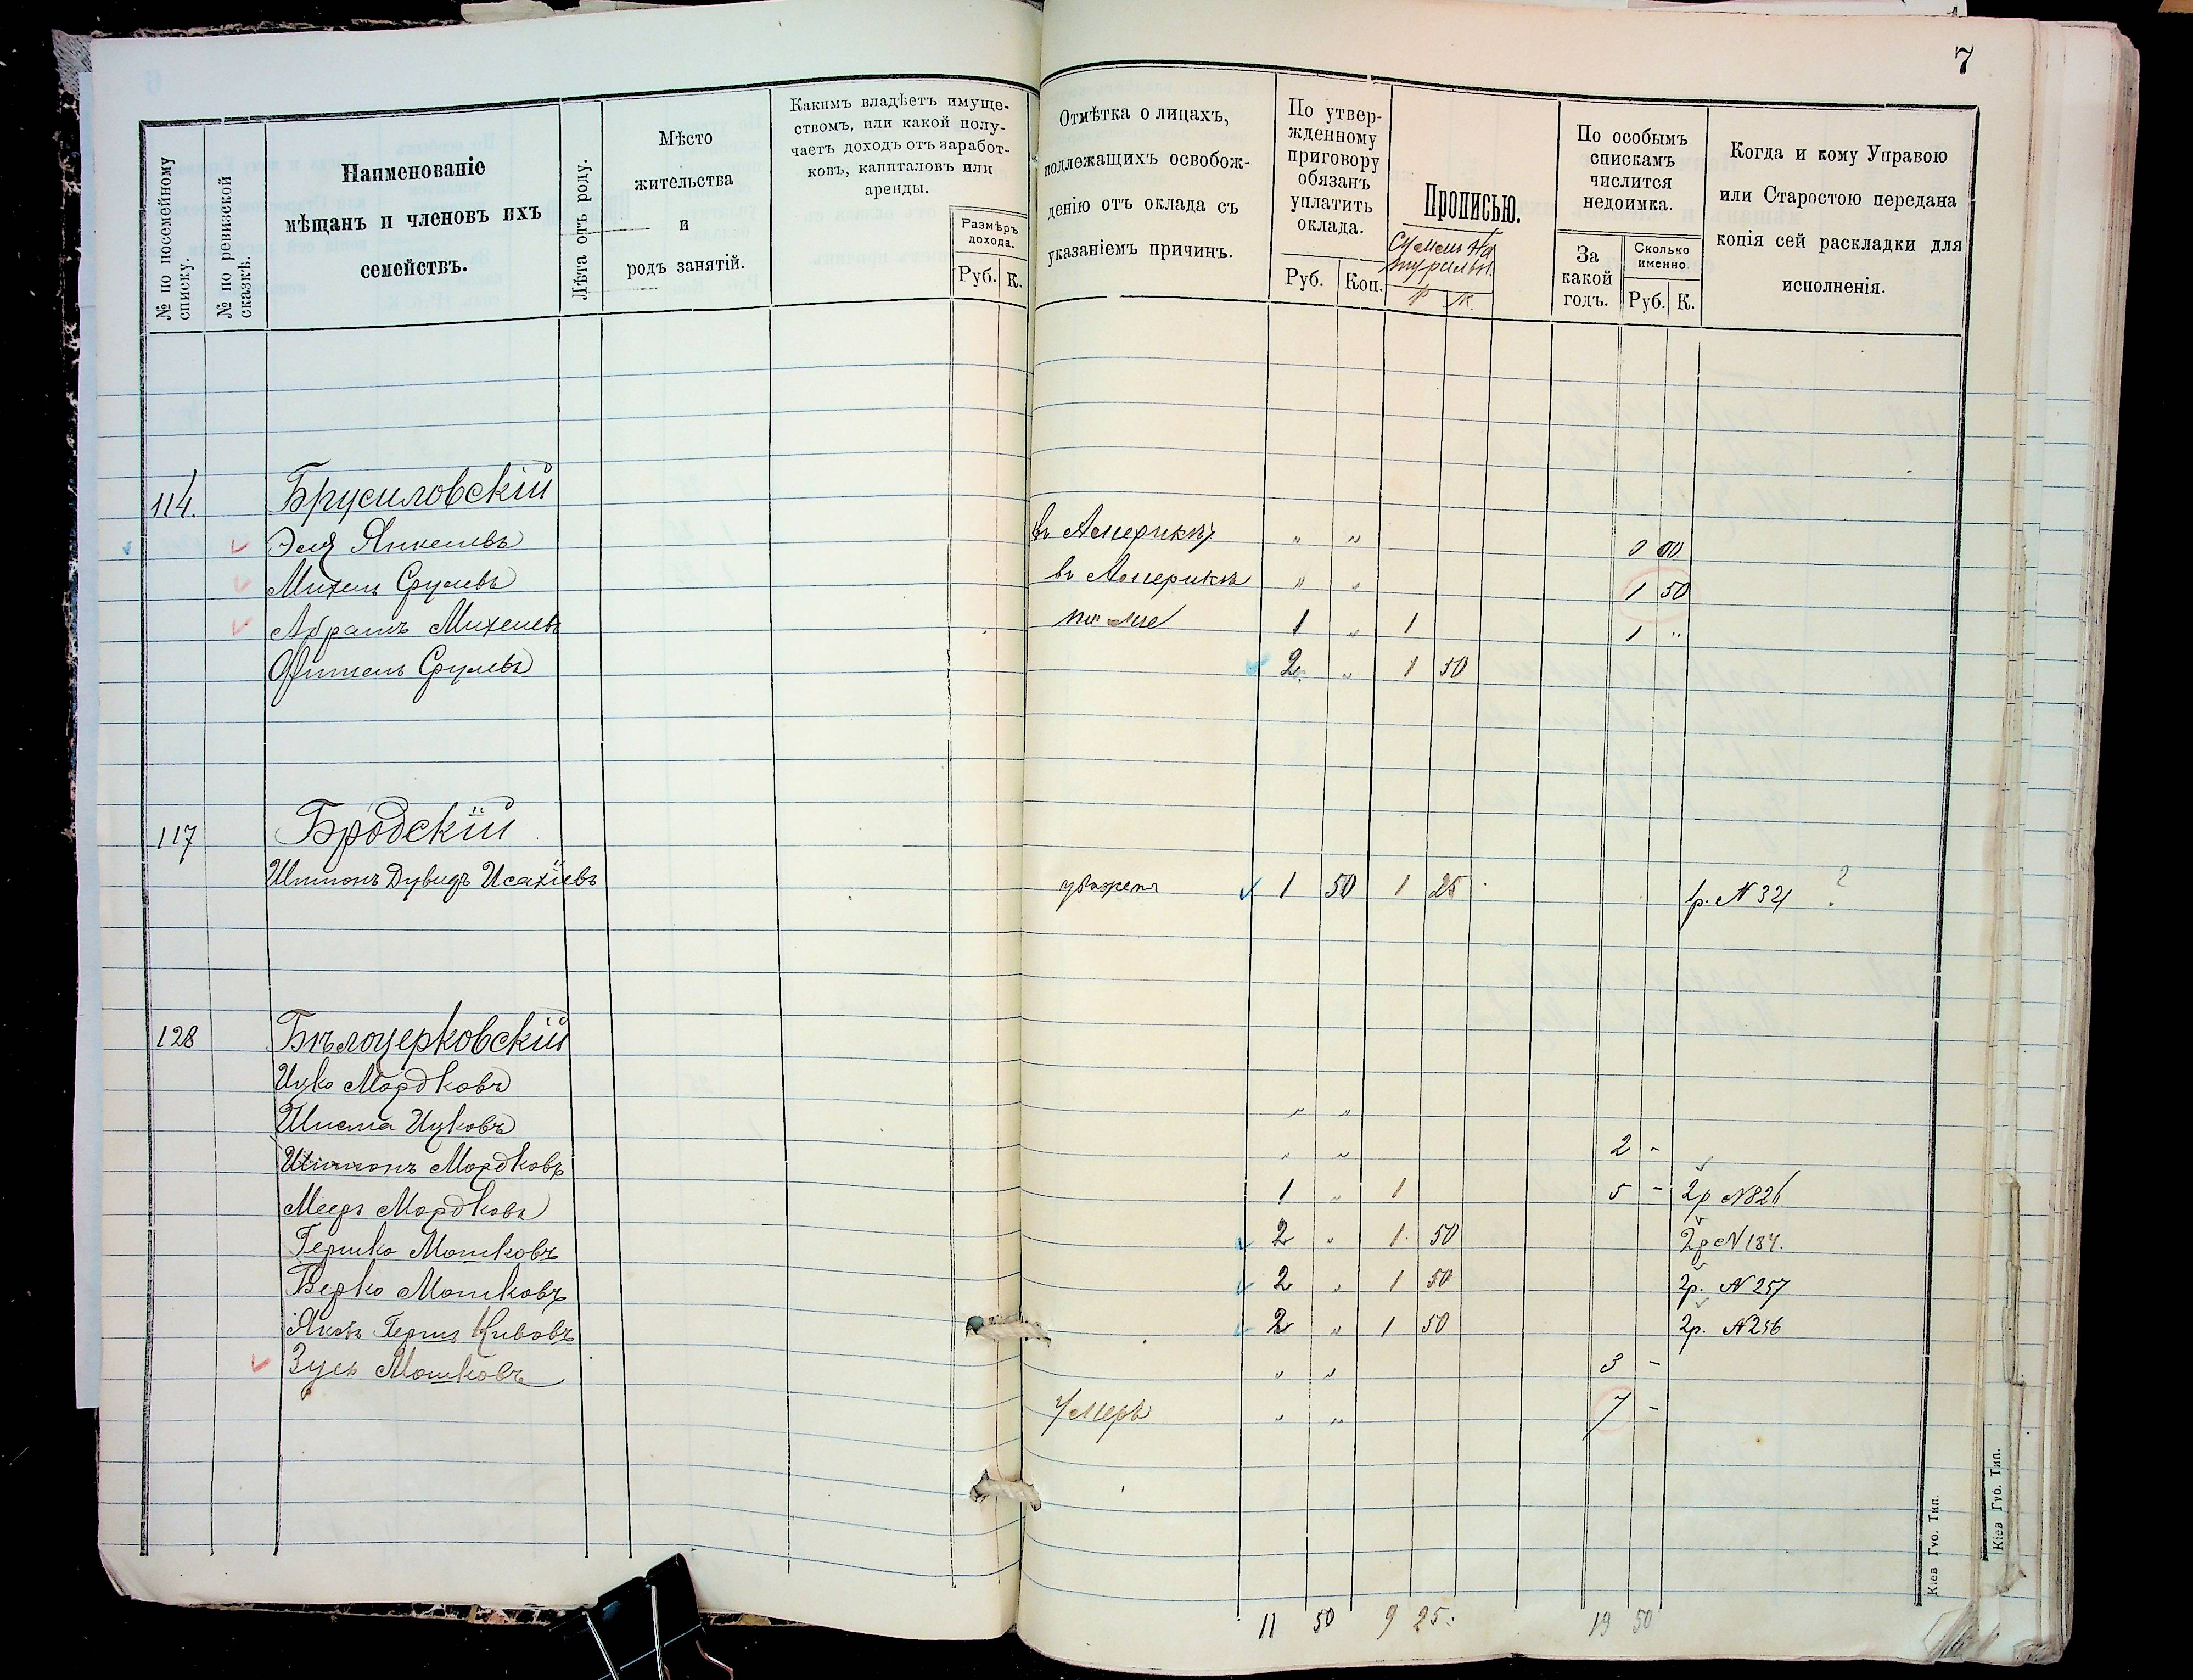 7
№ по посемейному
списку.
№ по ревизской
сказкѣ.
Наименованіе
мѣщанъ и членовъ ихъ
семействъ.
Лѣта отъ роду.
Мѣсто
жительства
и
родъ занятій.
Какимъ владѣетъ имуще-
ствомъ, или какой полу-
чаетъ доходъ отъ заработ-
ковъ, капиталовъ или
аренды.
Размѣръ
дохода.
Руб. К.
Отмѣтка о лицахъ,
подлежащихъ освобож-
денію отъ оклада съ
указаніемъ причинъ.
По утвер-
жденному
приговору
обязанъ
уплатить
оклада.
Руб. Коп.
Прописью.
р к.
По особымъ
спискамъ
числится
недоимка.
За
какой
годъ.
Сколько
именно
Руб. К.
Когда и кому Управою
или Старостою передана
копія сей раскладки для
исполненія.
114. Брусиловскій
Эля Янкелевъ въ Америкѣ " " 0 00
Михель Срулевъ въ Америкѣ " " 1 50
Абрамъ Михелевъ 1 " 1 1 "
Срулевъ 2 " 1 50
117 Бродскій
Шимонъ Дувидъ Исахіевъ 1 50 1 25 1р. N 321 ?
128 Бѣлоцерковскій
Ицко Мордковъ
Шлема Ицковъ " "
Шимонъ Мордковъ " " 2 -
Мееръ Мордковъ 1 " 1 5 - 2р N826
Гершко Мошковъ 2 " 1 50 2р N184.
Берко Мошковъ 2 " 1 50 2р. N 257
Герш Кивовъ 2 " 1 50 2р. N256
Зусь Мошковъ " " 3 -
Умеръ " " 7 -
11 50 9 25 19 50
Кіев Губ. Тип.
Кіев Губ. Тип.